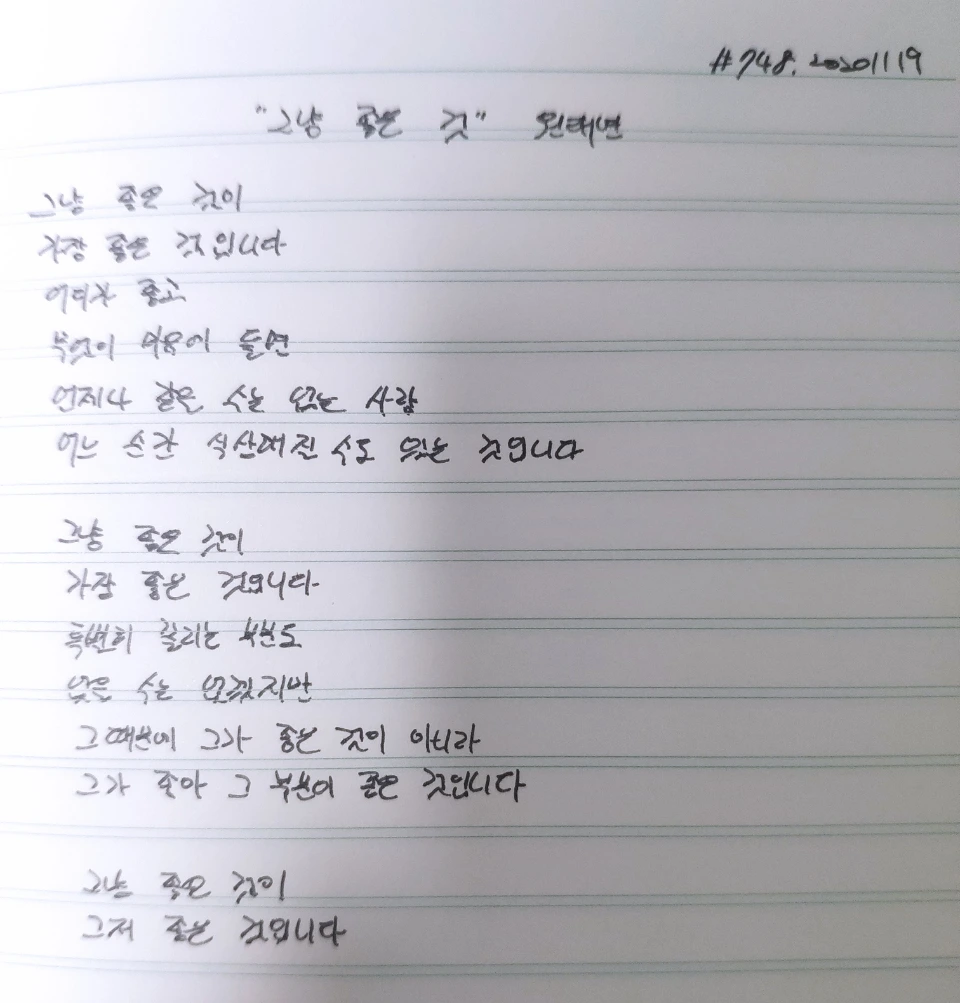 #748. 20201119
"그냥 좋은 것" 원태연
그냥 좋은 것이
가장 좋은 것입니다
어디가 좋고
무엇이 마음에 들면
언제나 같을 수는 없는 사람
어느 순간 식상해진 수도 있는 것입니다
그냥 좋은 것이
가장 좋은 것입니다
특별히 끌리는 부분도
없을 수는 없겠지만
그 때문에 그가 좋은 것이 아니라
그가 좋아 그 부분이 좋은 것입니다
그냥 좋은 것이
그저 좋은 것입니다